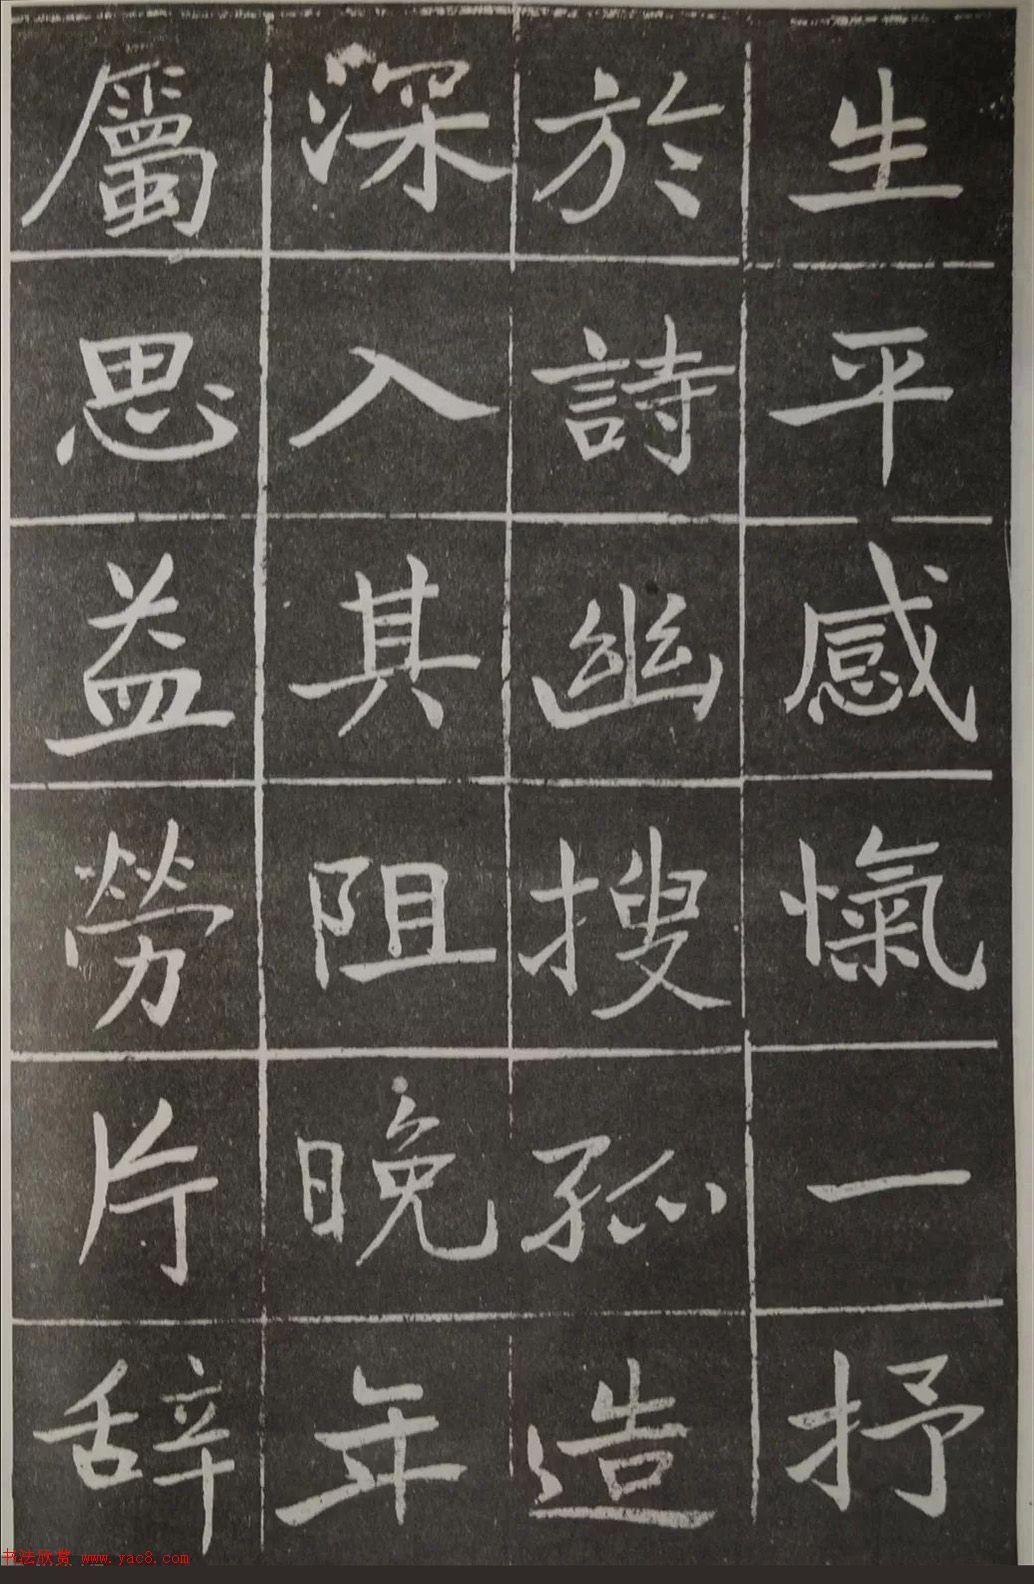 生平感愾一抒
於詩幽搜孤造
深入其阻晚年
屬思益勞片辞
书法欣赏 www.yac8.com